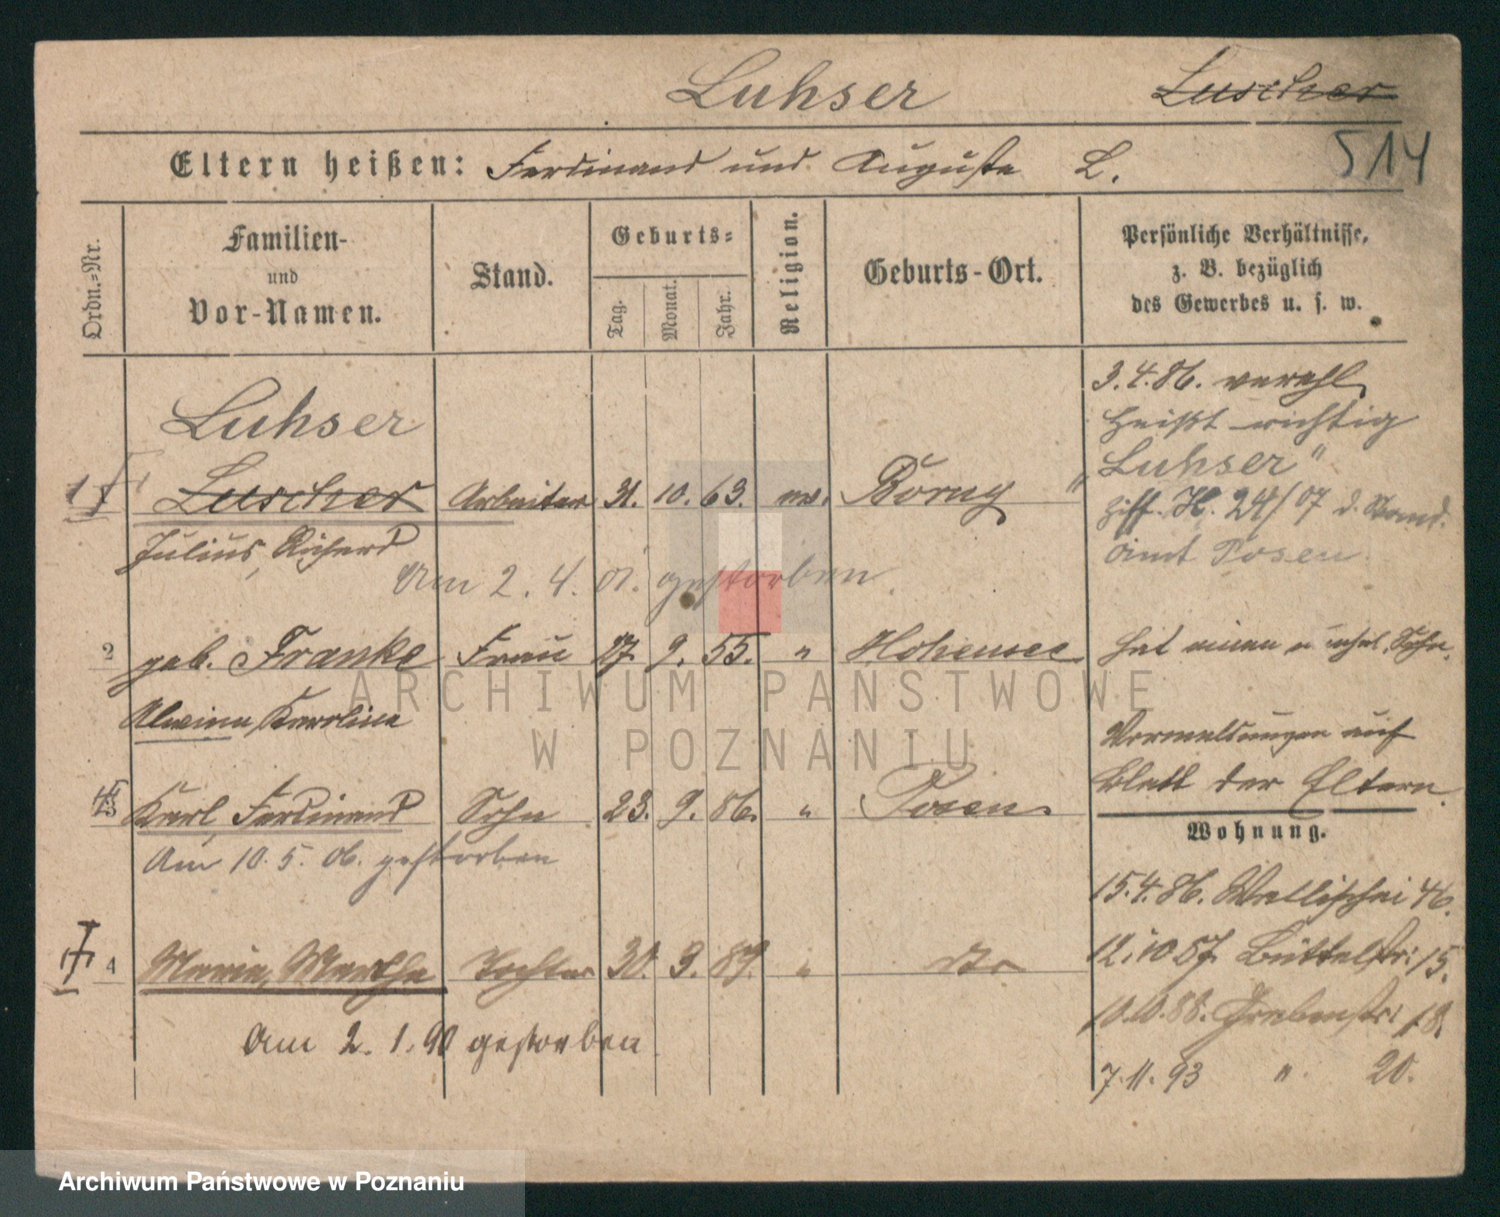 Luhser Luscher
514
Eltern heißen: Ferdinand und Auguste L.
Ordn.-Nr.
Familien-
und
Vor-Namen.
Stand.
Geburts-
Tag. Monat. Jahr.
Religion.
Geburts-Ort.
Persönliche Verhältnisse,
z. B. bezüglich
des Gewerbes u. s. w.
Luhser
1 Luscher Arbeiter 31. 10. 63. ev. Boruy
Julius, Richard
Am 2. 4. 01. gestorben
2 geb. Franke Frau 27. 9. 55. " Hohensee
Alwine, Karoline
3 Karl, Ferdinand Sohn 23. 9. 86. " Posen
Am 10. 5. 06. gestorben
4 Maria, Martha Tochter 30. 9. 87. " do
Am 2. 1. 90 gestorben
3.4.86. verehl
heißt richtig
"Luhser"
Ziff. H. 24/07 d. Stand.
amt Posen
Hat einen unehel. Sohn.
Vormeldungen auf
Blatt der Eltern.
Wohnung.
15.4.86. Wallischei 46.
12.10 87. Büttelstr: 15.
10.10.88. Grabenstr: 18.
7.11.93 " 20.
ARCHIWUM PAŃSTWOWE
W POZNANIU
Archiwum Państwowe w Poznaniu